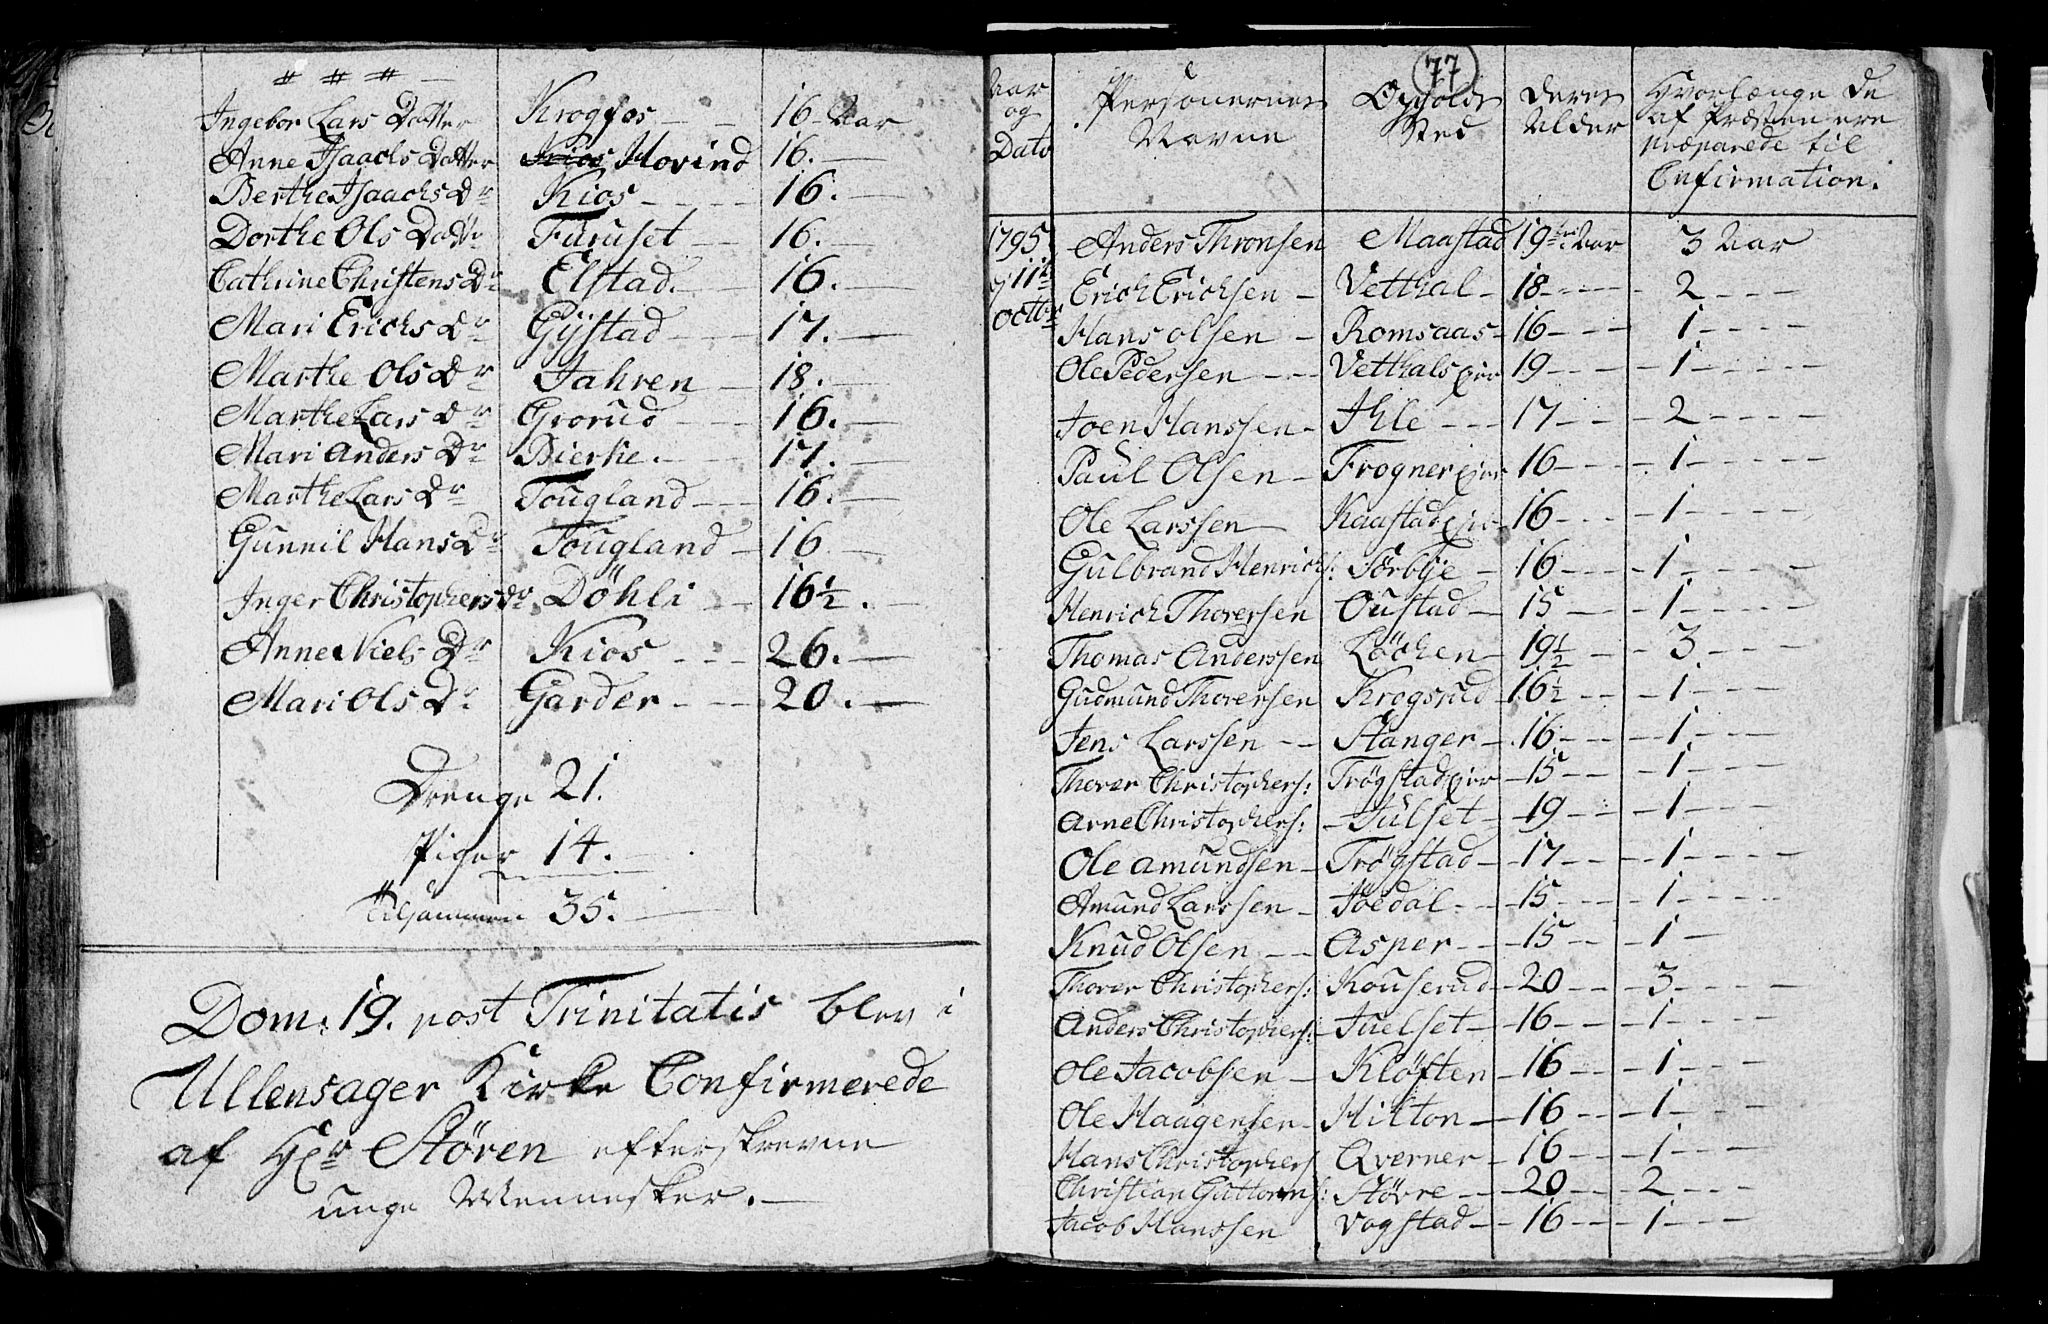 # # # —
Ingebor Lars Datter Krogfos — — 16 Aar
Anne Isaachs Datter Kios Hovind 16. —
Berthe Isaachs Dr Kios - - - - 16. —
Dorthe Ols Dattr Furuset — — 16. —
Cathrine Christens Dr Elstad. — — 16. —
Mari Erichs Dr Gÿstad — — 17. —
Marthe Ols Dr Jahren — 18. —
Marthe Lars Dr Grorud — — 16. —
Mari Anders Dr Bierke. — — 17. —
Marthe Lars Dr Tougland — — 16. —
Gunnil Hans Dr Tougland — 16 —
Inger Christophers dr Döhli — — 16½. —
Anne Niels Dr Kios — — — 26. —
Mari Ols Dr Garder — — — 20. —
Drenge 21.
Piger 14. —
Tilsammen 35. —
Dom: 19. post Trinitatis blev i
Ullensager Kirke Confirmerede
af Hr Stören efterskrevne
unge Mennesker. —
77
Aar og Dato Personernes Navne Opholds Sted Deres Alder Hvorlænge de af Præsten ere præparede til Confirmation.
1795 Anders Thronsen Maastad 19 Aar 3 Aar
d 11te Erich Erichsen — Vetthal — 18 - - - - 2 - - - -
octbr Hans olsen — Romsaas — 16 — — — 1 - - - -
Ole Pedersen — — Vethals Eier 19 — — — 1 - - - -
Joen Hanssen — Ihle — — — 17 — — — 2 - - - -
Paul Olsen — Frogner Eier 16 — — — 1 - - - -
Ole Larssen — Kaastad Eier — 16 — — — 1 - - - -
Gulbrand Henrichs: Sörbÿe — 16 — — — 1 - - - -
Henrich Thorersen Oustad — 15 — — — 1 - - - -
Thomas Anderssen Löchen — 19½ — — 3 - - - -
Gudmund Thorersen Krogsrud — 16½ — — — 1 - - - -
Jens Larssen — — Stanger — 16 — — — 1 - - - -
Thorer Christophers: Trögstad Eier — 15 — — — 1 - - - -
Arne Christophers: — Julset — 19 — — — 1 - - - -
Ole Amundsen — Trögstad — 17 — — — 1 - - - -
Amund Larssen — Joedal — — 15 — — — 1 - - - -
Knud Olsen — — Asper — — 15 — — — 1 —
Thorer Christophers: Kouserud — 20 — — — 3 - - - -
Anders Christophers: Juelset — 16 — — — 1 - - - -
Ole Jacobsen — Klöften — 16 — — — 1 - - - -
Ole Haagensen — Hilton — 16 — — — 1 - - - -
Hans Christophers Qverner — 16 — — — 1 - - - -
Christian Guttorms: Stövre — — 20 — — — 2 - - - -
Jacob Hanssen Vogstad — 16 — — — 1 - - - -